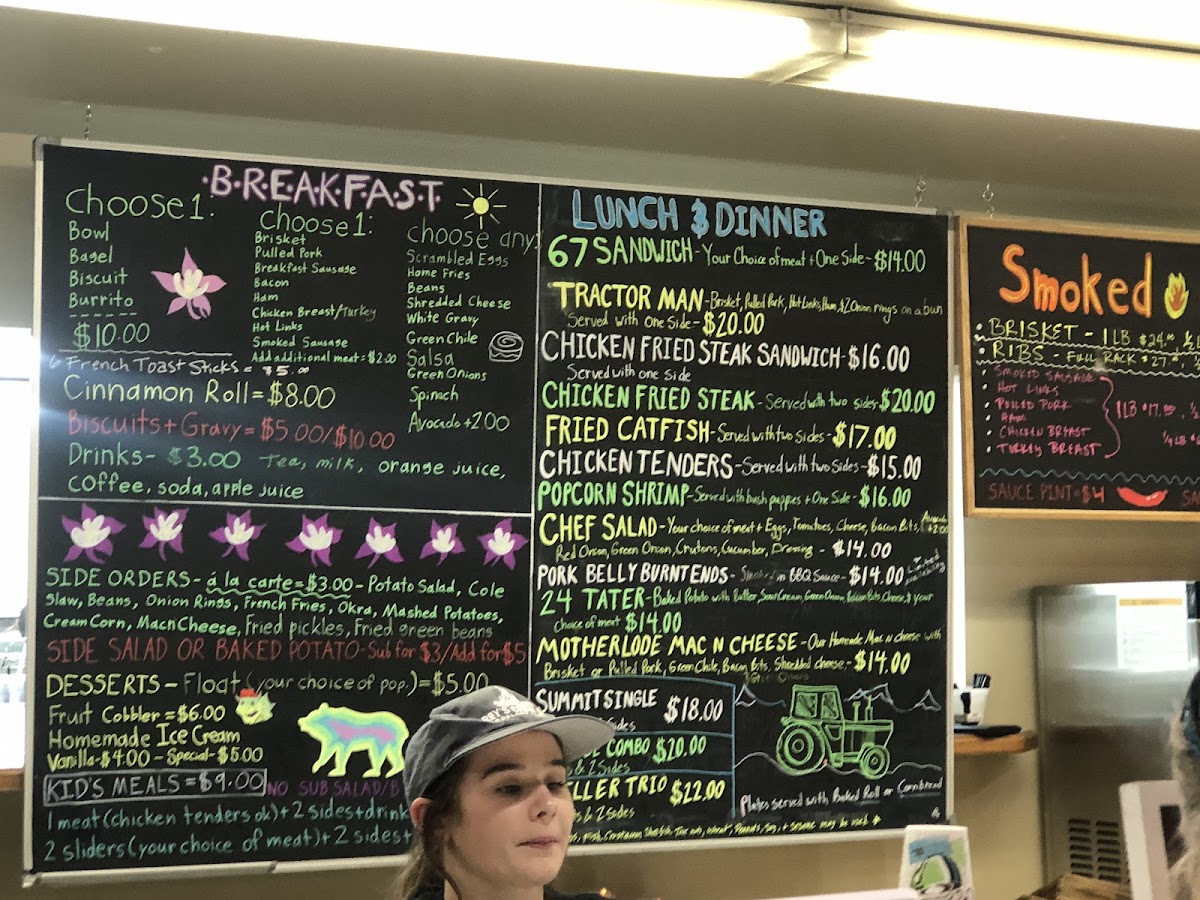 BREAKFAST
Choose 1:
Bowl
Bagel
Biscuit
Burrito
$10.00
Choose 1:
Brisket
Pulled Pork
Breakfast Sausage
Bacon
Ham
Chicken Breast/Turkey
Hot Links
Smoked Sausage
Add additional meat = $2.00
choose any:
Scrambled Eggs
Home Fries
Beans
Shredded Cheese
White Gravy
Green Chile
Salsa
Green Onions
Spinach
Avocado +2.00
6 French Toast Sticks = $5.00
Cinnamon Roll = $8.00
Biscuits + Gravy = $5.00/$10.00
Drinks - $3.00 Tea, milk, orange juice,
coffee, soda, apple juice
SIDE ORDERS - á la carte = $3.00 - Potato Salad, Cole
Slaw, Beans, Onion Rings, French Fries, Okra, Mashed Potatoes,
Cream Corn, Mac n Cheese, Fried pickles, Fried green beans
SIDE SALAD OR BAKED POTATO - Sub for $3/Add for $5
DESSERTS - Float (your choice of pop.) = $5.00
Fruit Cobbler = $6.00
Homemade Ice Cream
Vanilla - $4.00 - Special - $5.00
KID'S MEALS = $9.00
NO SUB SALAD/B
1 meat (chicken tenders ok) + 2 sides + drink
2 sliders (your choice of meat) + 2 sides +
LUNCH & DINNER
67 SANDWICH - Your Choice of meat + One Side - $14.00
TRACTOR MAN - Brisket, Pulled Pork, Hot Links, Ham, & 2 Onion rings on a bun
Served with One Side - $20.00
CHICKEN FRIED STEAK SANDWICH - $16.00
Served with one Side
CHICKEN FRIED STEAK - Served with two sides - $20.00
FRIED CATFISH - Served with two Sides - $17.00
CHICKEN TENDERS - Served with two Sides - $15.00
POPCORN SHRIMP - Served with hush puppies + One Side - $16.00
CHEF SALAD - Your choice of meat + Eggs, Tomatoes, Cheese, Bacon Bits, Avocado +2.00
Red Onion, Green Onion, Crutons, Cucumber, Dressing - $14.00
PORK BELLY BURNT ENDS - Smoked in BBQ Sauce - $14.00 Limited availability
24 TATER - Baked Potato with Butter, Sour Cream, Green Onion, Bacon Bits, Cheese, & your
choice of meat $14.00
MOTHERLODE MAC N CHEESE - Our Homemade Mac n cheese with
Brisket or Pulled Pork, Green Chile, Bacon Bits, Shredded cheese, - $14.00
& Green Onions
SUMMIT SINGLE $18.00
Sides
COMBO $20.00
& 2 Sides
LLER TRIO $22.00
& 2 Sides
Plates served with Baked Roll or Cornbread
may be used
Smoked
BRISKET - 1 LB $24.00, 1/2
RIBS - FULL RACK $27
SMOKED SAUSAGE
HOT LINKS
PULLED PORK
HAM
CHICKEN BREAST
TURKEY BREAST
1 LB $17.00
SAUCE PINT = $4